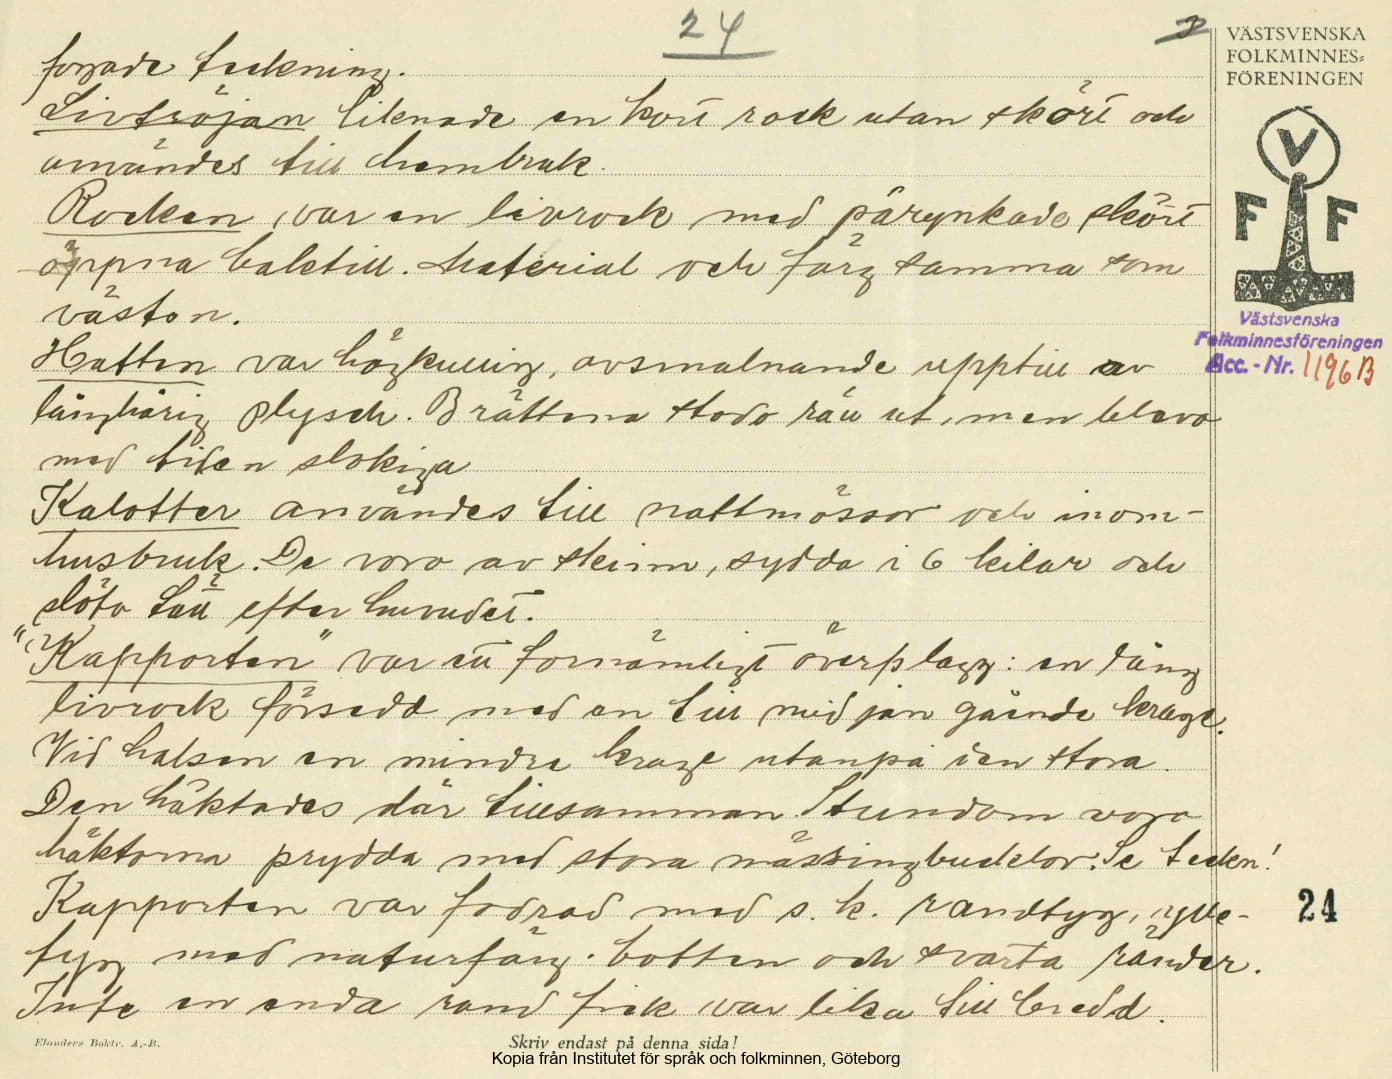 24
VÄSTSVENSKA
FOLKMINNES-
FÖRENINGEN
V
F F
Västsvenska
Folkminnesföreningen
Acc.-Nr. 1196 B
fogade teckning.
Livtröjan liknade en kort rock utan skört och
användes till hembruk.
Rocken var en livrock med pårynkade skört
öppna baktill. Material och färg samma som
västen.
Hatten var högkullig, avsmalnande upptill av
långhårig plysch. Brättena stodo rätt ut, men blevo
med tiden slokiga
Kalotter användes till nattmössor och inom-
husbruk. De voro av skinn, sydda i 6 kilar och
slöto tätt efter huvudet.
"Kapporten" var ett förnämligt överplagg: en lång
livrock försedd med en till midjan gående krage.
Vid halsen en mindre krage utanpå den stora.
Den häktades där tillsamman Stundom voro
häktorna prydda med stora mässingbucklor. Se teckn!
Kapporten var fodrad med s.k. randtyg, ylle-
tyg med naturfärg. botten och svarta ränder.
Inte en enda rand fick var lika till bredd.
24
Elanders Boktr. A.-B.
Skriv endast på denna sida!
Kopia från Institutet för språk och folkminnen, Göteborg